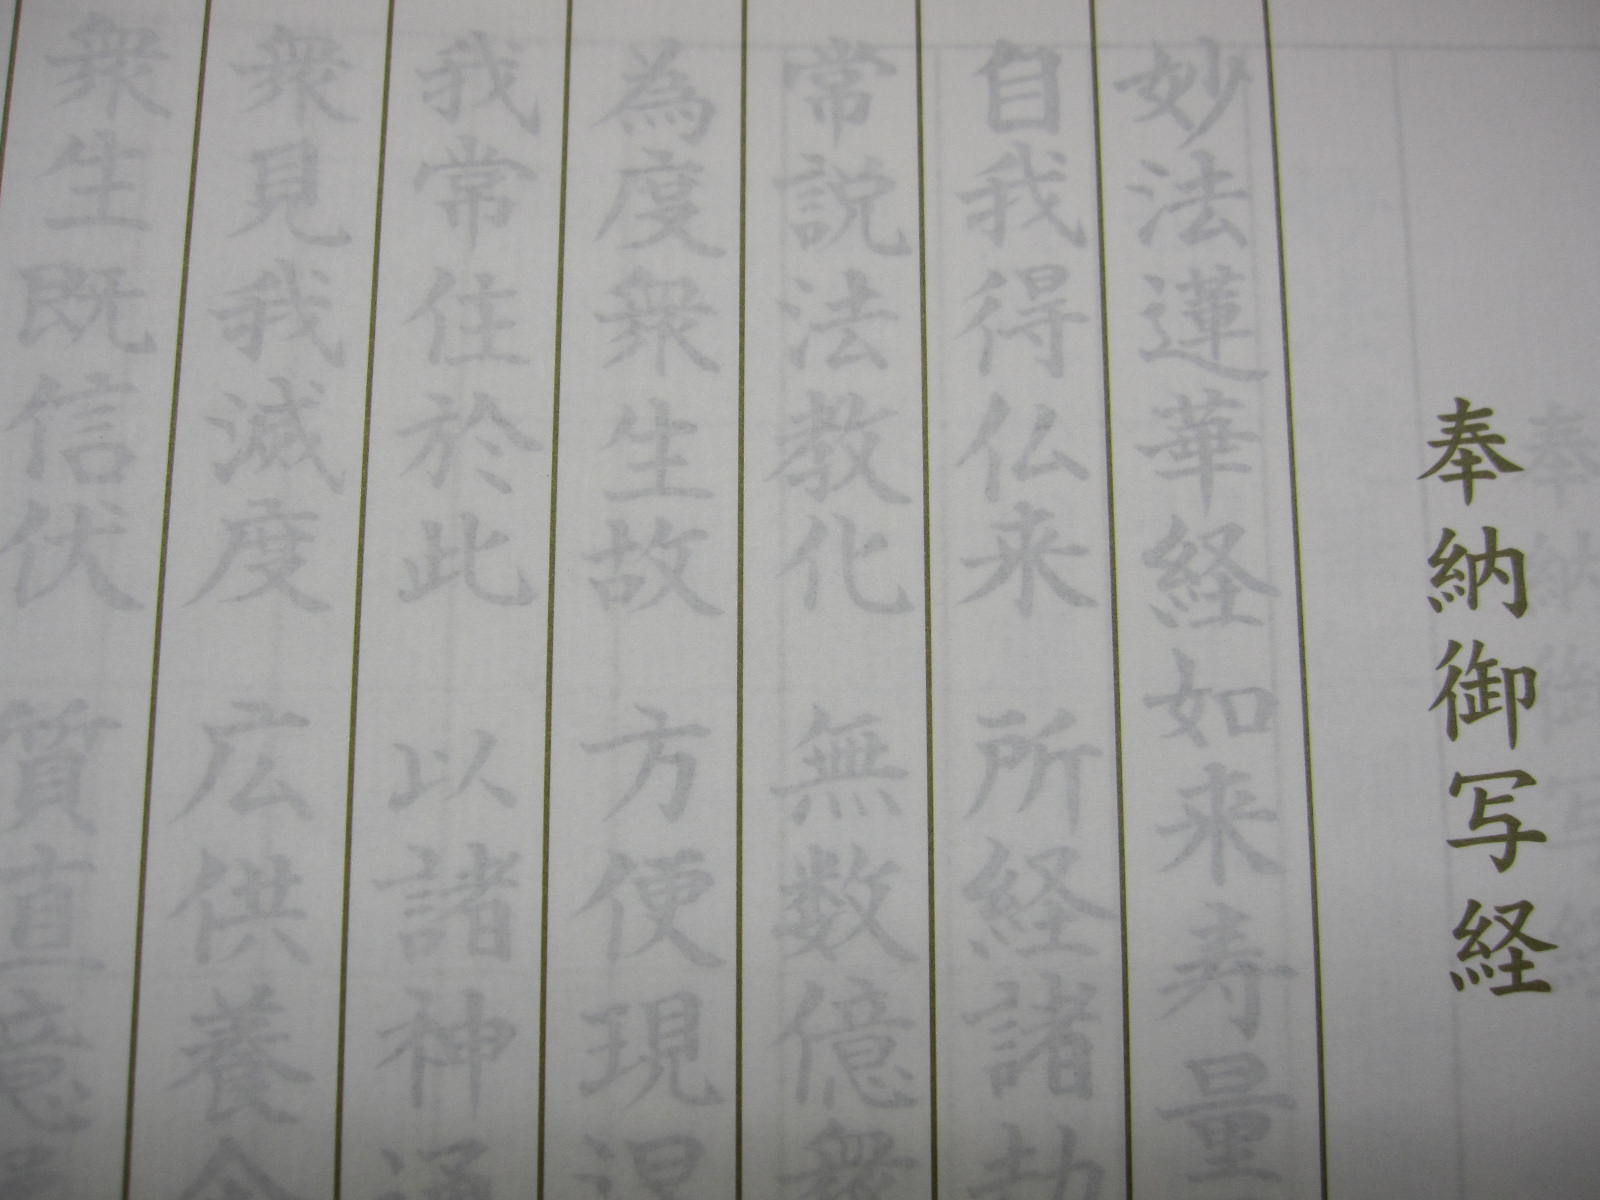 奉納御写経
妙法蓮華経如来寿量
自我得仏来 所経諸劫
常説法教化 無数億衆
為度衆生故 方便現涅
我常住於此 以諸神通
衆見我滅度 広供養
衆生既信伏 質直意